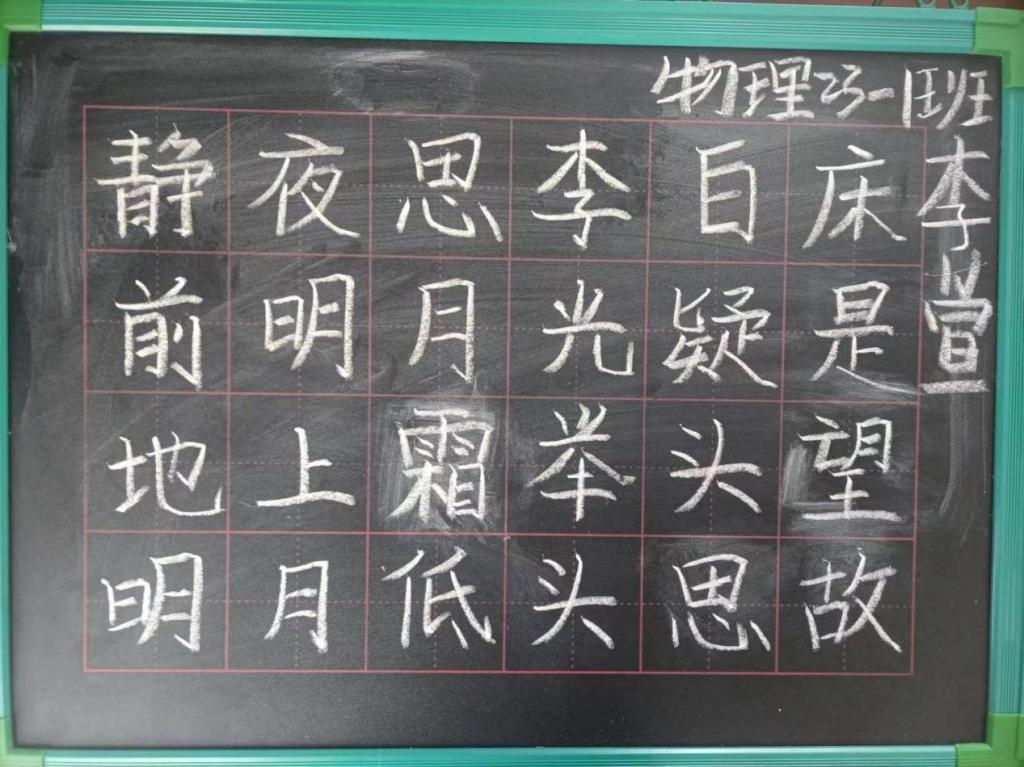 物理23-1班
李萱
静夜思李自床
前明月光疑是
地上霜举头望
明月低头思故